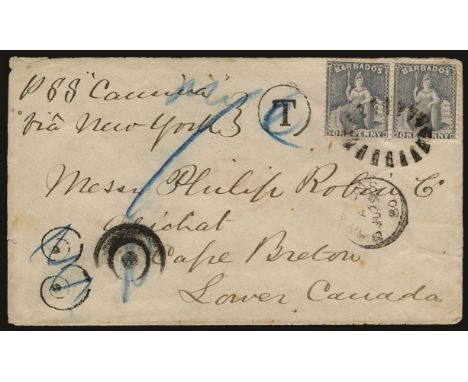 P SS "Canima"
via New York
T
BARBADOS
BARBADOS
ONE PENNY
ONE PENNY
Messrs Philip Robin C°
Arichat
Cape Breton
Lower Canada